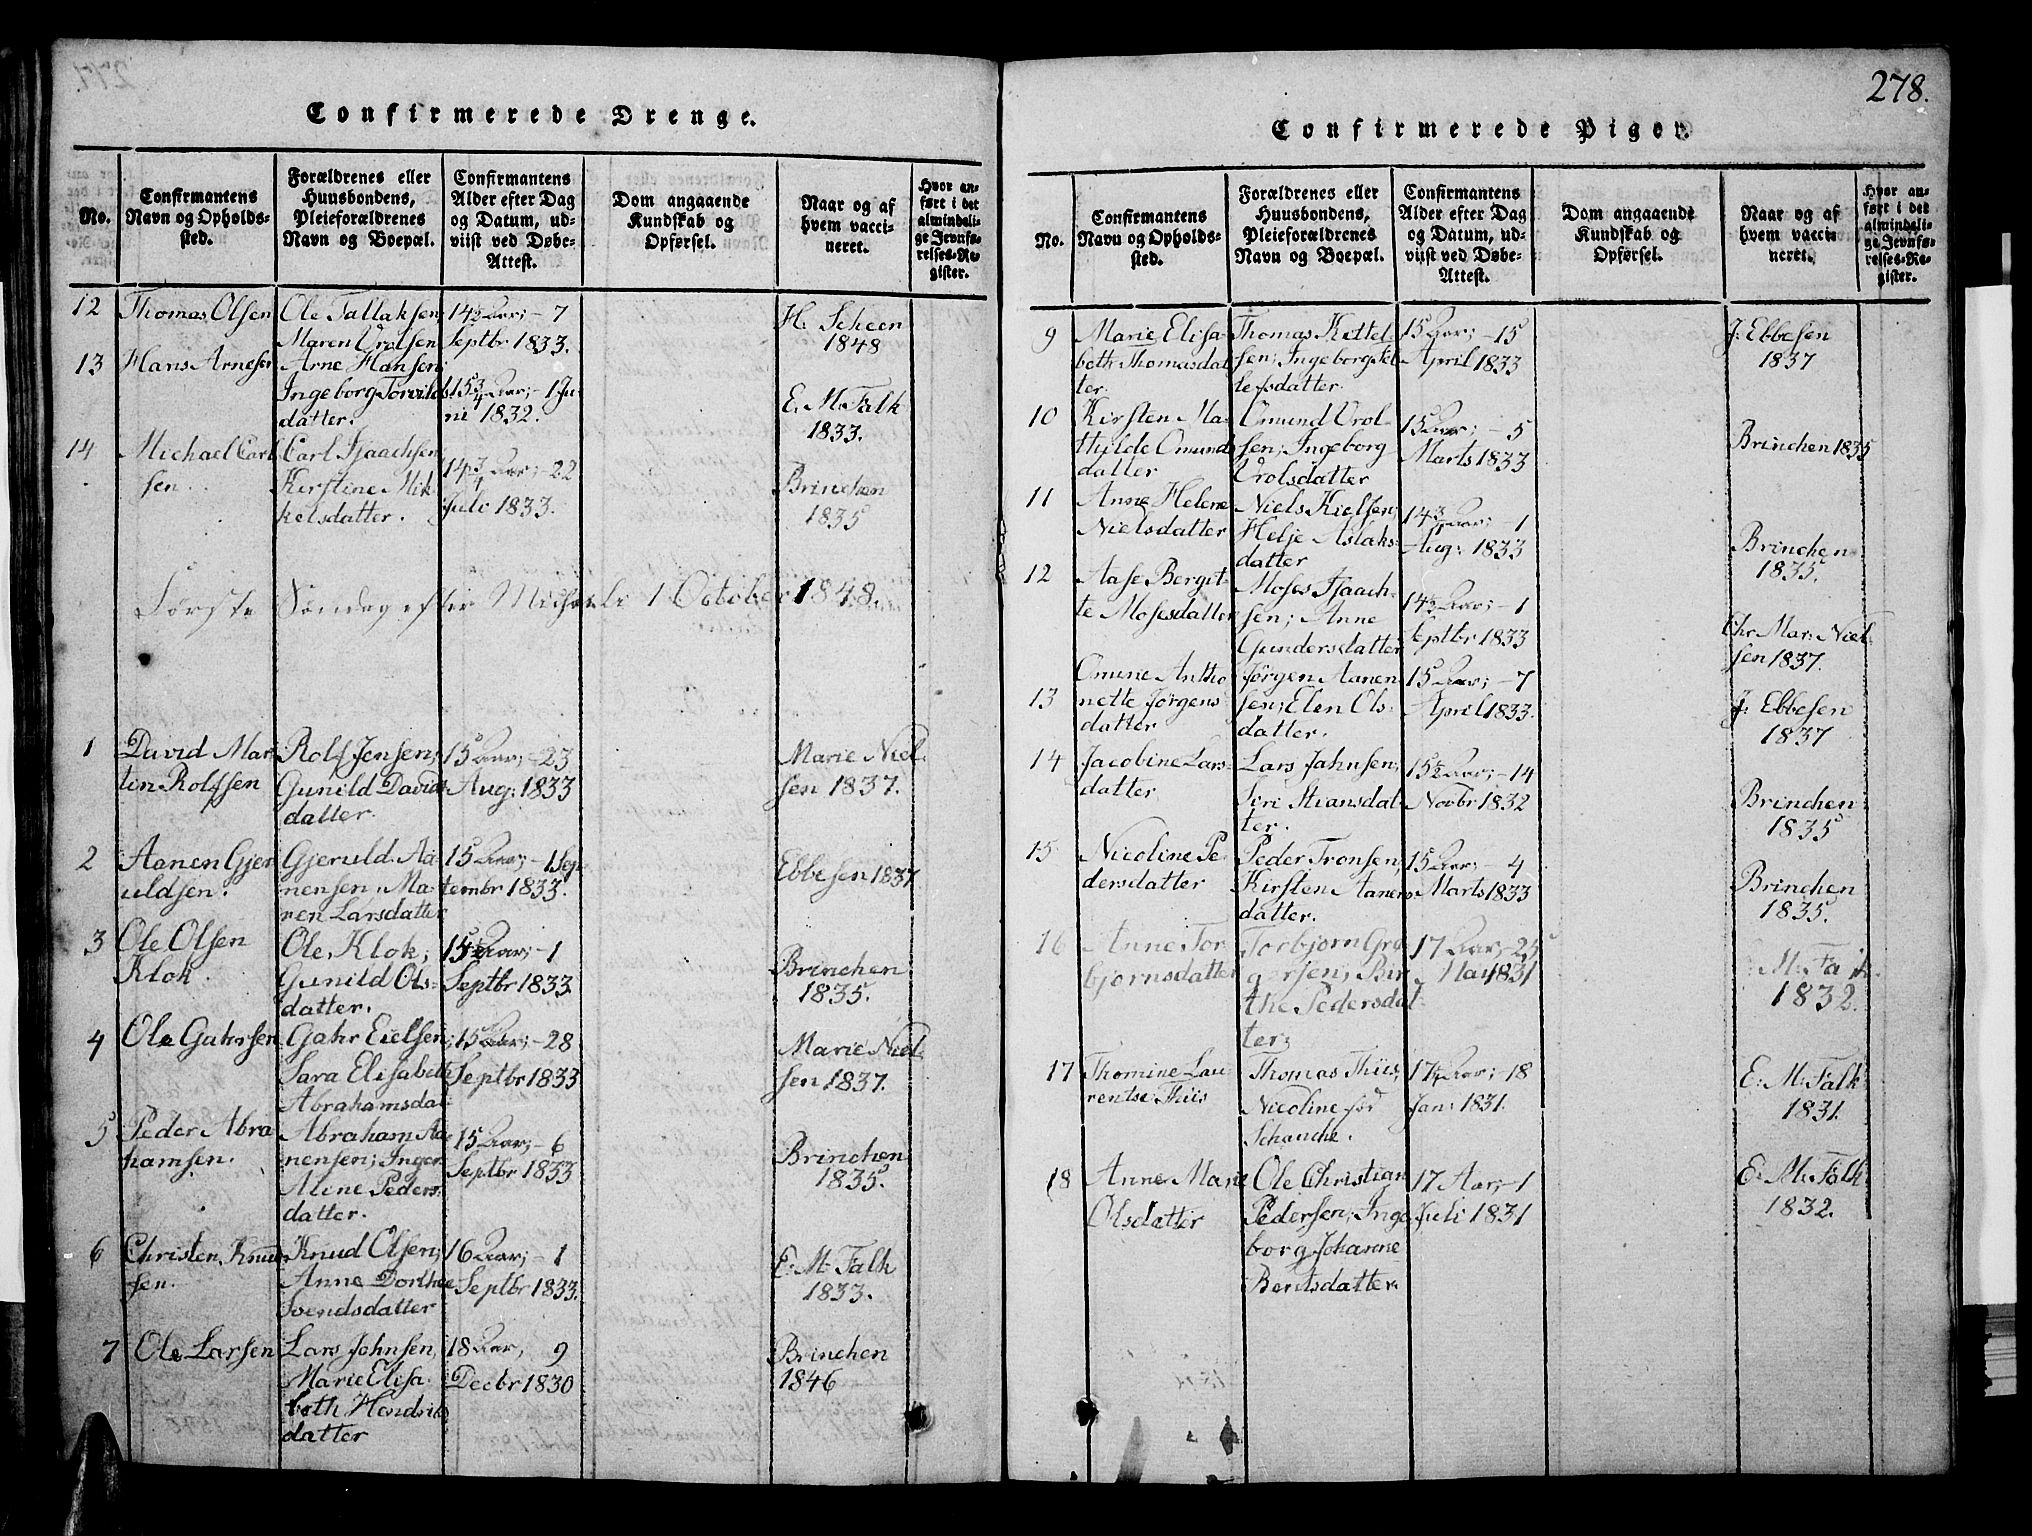 278.
Confirmerede Drenge.
No.
Confirmantens
Navn og Opholds-
sted.
Forældrenes eller
Huusbondens,
Pleieforældrenes
Navn og Boepæl.
Confirmantens
Alder efter Dag
og Datum, ud-
viist ved Døbe-
Attest.
Dom angaaende
Kundskab og
Opførsel.
Naar og af
hvem vacci-
neret.
Hvor an-
ført i det
almindeli-
ge Jevnfø-
relses-Re-
gister.
12
Thomas Olsen
Ole Tallaksen;
Maren Vrolsen
14½ Aar; - 7
Septbr 1833.
H. Scheen
1848
13
Hans Arnesen
Arne Hansen;
Ingeborg Torvilds
datter.
15¾ Aar; - 1 Ju-
ni 1832.
E. M. Falk
1833.
14
Michael Carl
sen.
Carl Isaachsen;
Kirstine Mik
kelsdatter.
14¾ Aar; - 22
Juli 1833.
Brinchen
1835
Første Søndag efter Michaeli 1 October 1848.
1
David Mar
tin Rolfsen
Rolf Jensen;
Gunild Davids
datter.
15 Aar; - 23
Aug: 1833
Marie Niel
sen 1837.
2
Aanen Gjer
uldsen.
Gjeruld Aa-
nensen, Ma-
ren Larsdatter
15 Aar; - 1 Sep-
tembr 1833.
Ebbesen 1837
3
Ole Olsen
Klok.
Ole Klok;
Gunild Ols-
datter.
15 Aar; - 1
Septbr 1833.
Brinchen
1835.
4
Ole Gahrsen
Gahr Eielsen;
Sara Elisabeth
Abrahamsdat
15 Aar; - 28
Septbr 1833
Marie Niel
sen 1837.
5
Peder Abra
hamsen.
Abraham Aa
nensen; Inger
Aline Peders
datter.
15 Aar; - 6
Septbr 1833
Brinchen
1835.
6
Christen Knud
sen.
Knud Olsen;
Anne Dorthee
Svendsdatter
16 Aar; - 1
Septbr 1833.
E. M. Falk
1833.
7
Ole Larsen
Lars Johnsen,
Marie Elisa
beth Hendriks
datter
18 Aar, 9
Decbr 1830
Brinchen
1846
Confirmerede Piger.
No.
Confirmantens
Navn og Opholds-
sted.
Forældrenes eller
Huusbondens,
Pleieforældrenes
Navn og Boepæl.
Confirmantens
Alder efter Dag
og Datum, ud-
viist ved Døbe-
Attest.
Dom angaaende
Kundskab og
Opførsel.
Naar og af
hvem vacci-
neret.
Hvor an-
ført i det
almindeli-
ge Jevnfø-
relses-Re-
gister.
9
Marie Elisa-
beth Thomasdat
ter.
Thomas Kittel-
sen; Ingeborg
datter.
15 Aar; - 15
April 1833
J: Ebbesen
1837
10
Kirsten Ma-
thilde Omund
datter
Omund Vrol-
sen; Ingeborg
Vrolsdatter
15 Aar; - 5
Marts 1833
Brinchen 1835
11
Anne Helene
Nielsdatter
Niels Kielsen;
Helje Aslaks-
datter
14¾ Aar; - 1
Aug: 1833
Brinchen
1835.
12
Aase Bergit-
te Mosesdatter
Moses Isaach-
sen; Anne
Gundersdatter
14½ Aar; - 1
Septbr 1833
Chr Mar: Niel
sen 1837.
13
Omine Antho
nette Jørgens
datter
Jørgen Aanen
sen; Elen Ols-
datter.
15 Aar; - 7
April 1833.
J: Ebbesen
1837
14
Jacobine Lars-
datter
Lars Jahnsen;
Siri Stiansdat-
ter.
15½ Aar; - 14
Novbr 1832
Brinchen
1835
15
Nicoline Pe
dersdatter
Peder Tronsen,
Kirsten Aanens-
datter.
15 Aar; - 4
Marts 1833
Brinchen
1835.
16
Anne Tor
bjornsdatter
Torbjorn Gre
gersen; Bir
the Pedersdat-
ter;
17 Aar; - 25
Mai 1831
M: Falk.
1832.
17
Thomine Lau
rentse Thiis
Thomas Thiis;
Nicoline før
Schanche.
17¼ Aar; - 18
Jan: 1831.
E: M: Falk
1831.
18
Anne Marie
Olsdatter
Ole Christian
Pedersen; Inge
borg Johanne
Berdtsdatter.
17 Aar, - 1
Juli 1831
E: M: Falk
1832.